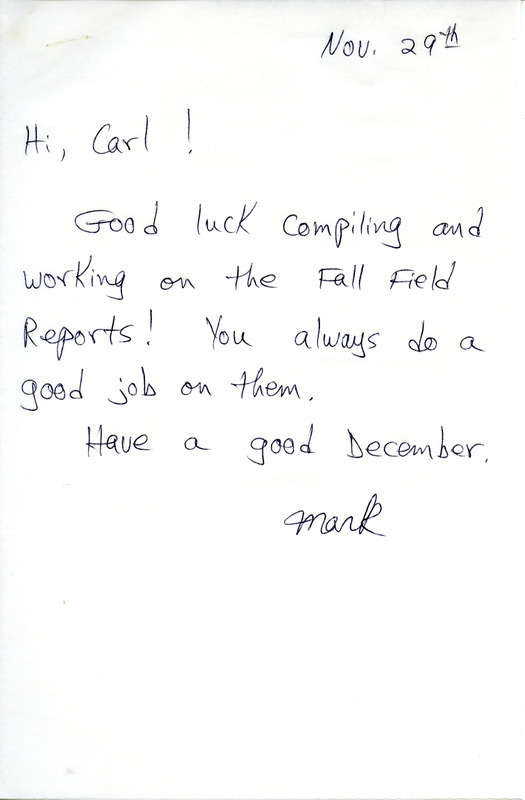 Nov. 29th
Hi, Carl !
Good luck compiling and
working on the Fall Field
Reports! You always do a
good job on them.
Have a good December.
Mark